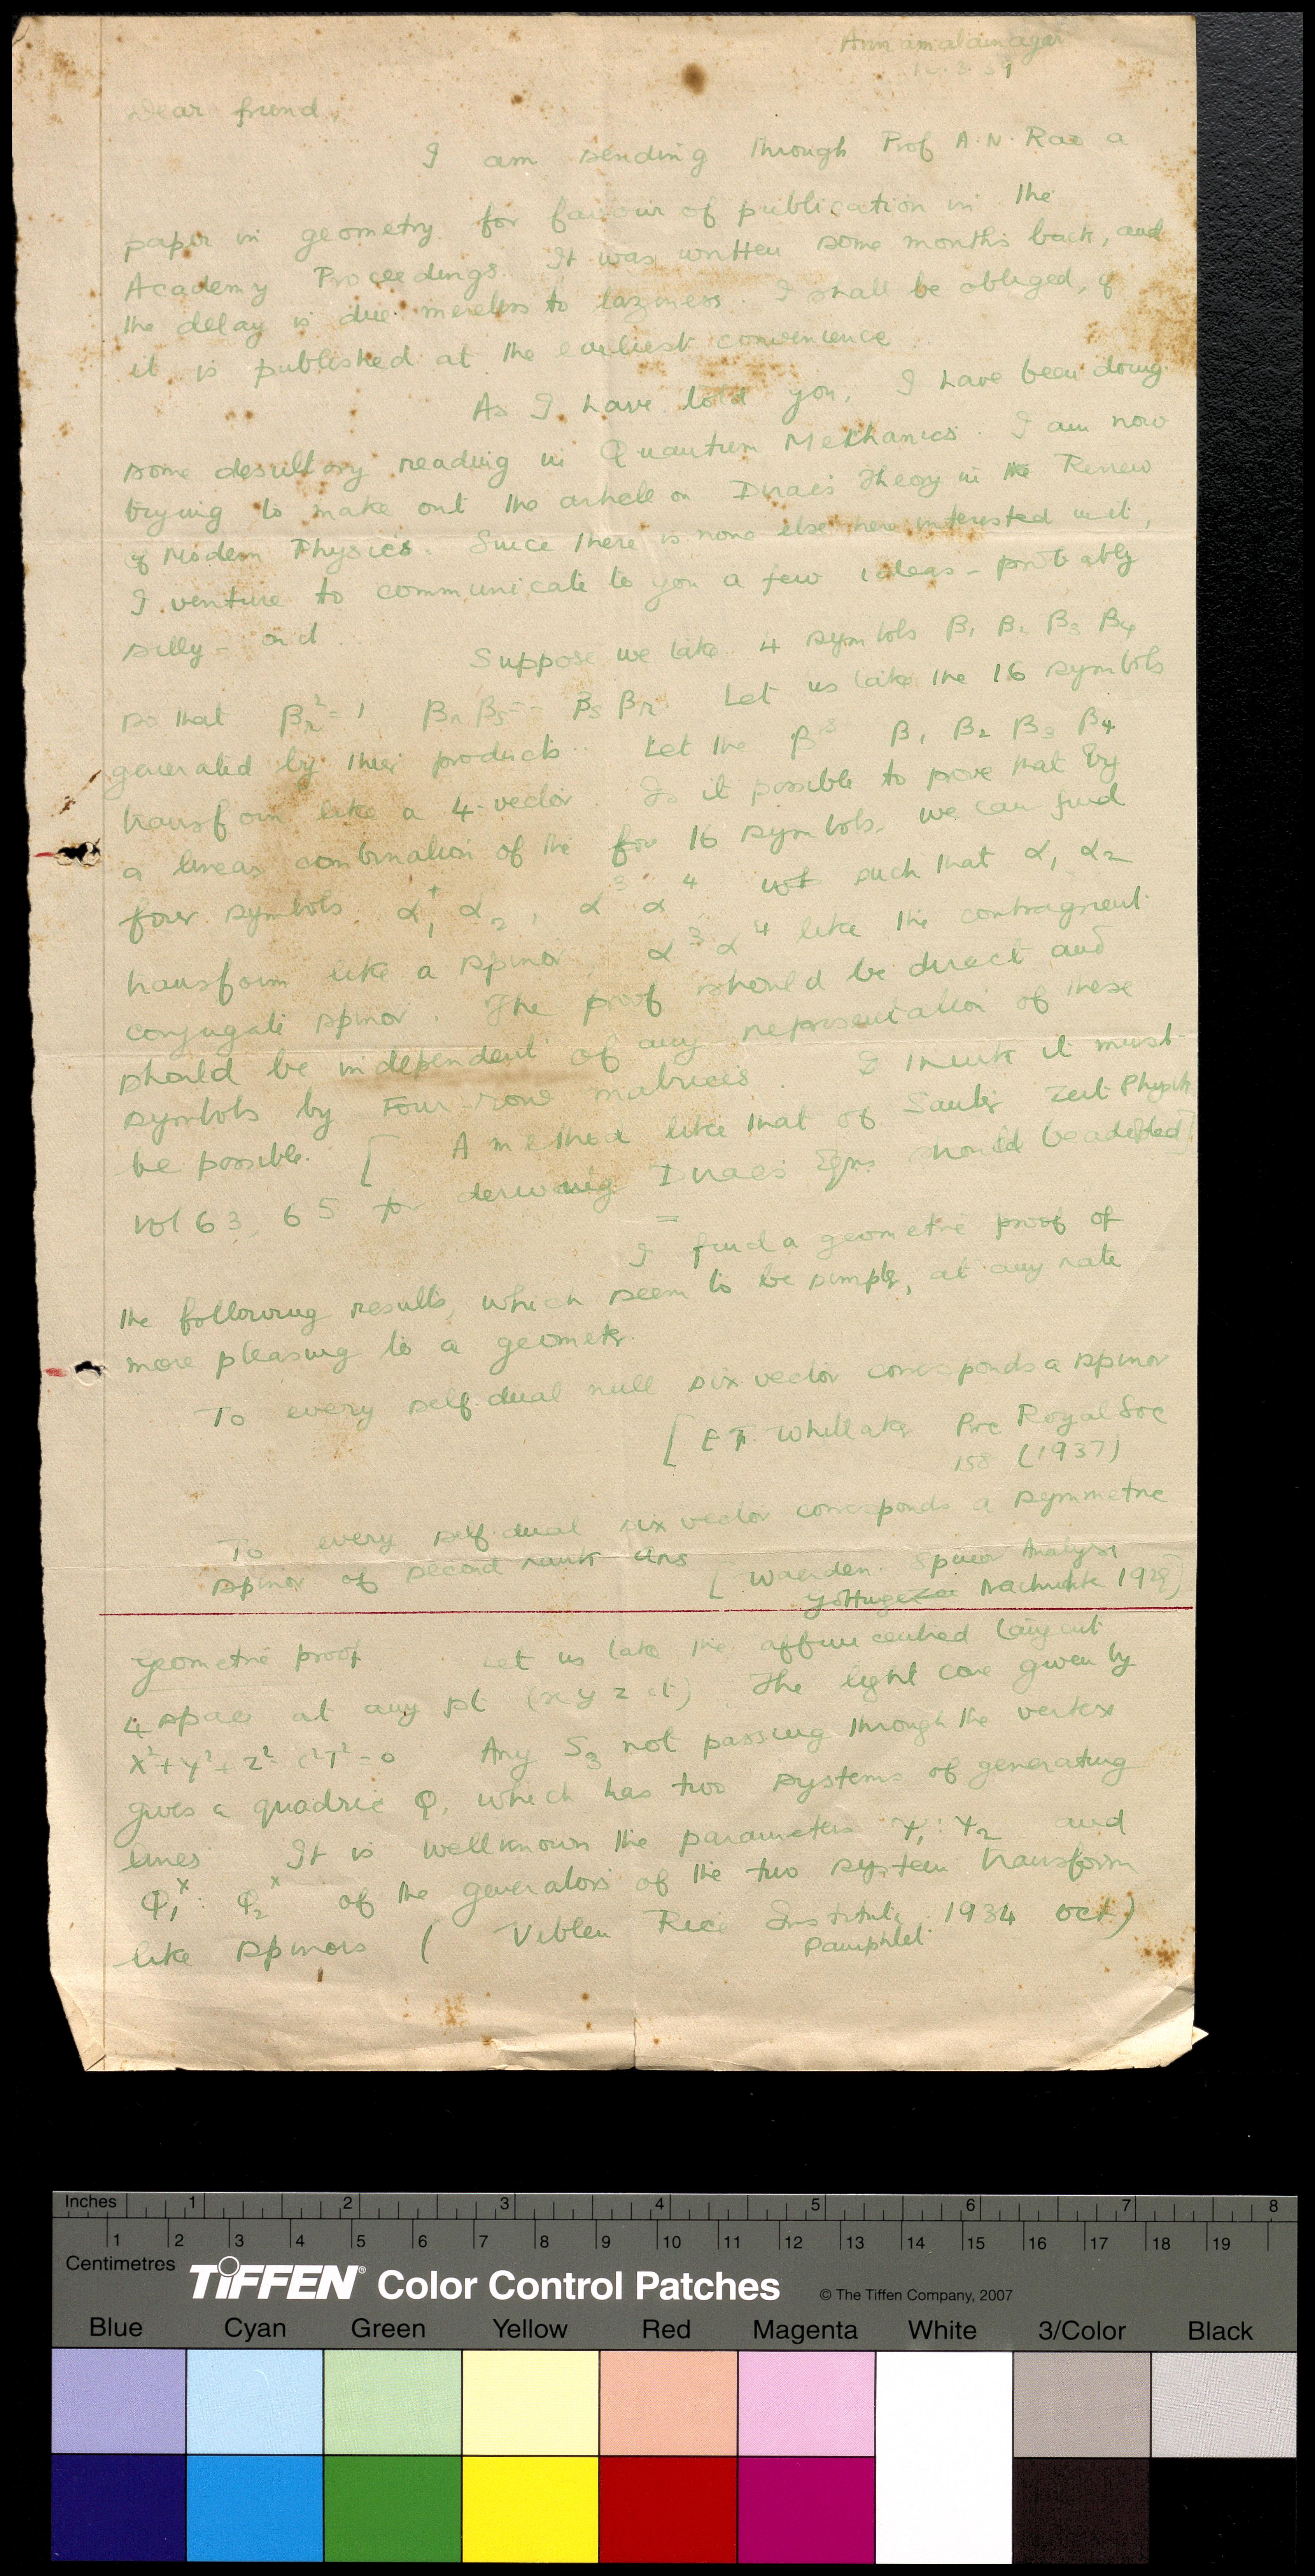 Annamalainagar
Dear friend,
I am sending through Prof A. N. Rao a
paper in geometry for favour of publication in the
Academy Proceedings. It was written some months back, and
the delay is due merely to laziness. I shall be obliged, if
it is published at the earliest convenience.
As I have told you, I have been doing
some desultory reading in Quantum Mechanics. I am now
trying to make out the article on Dirac's Theory in the Review
of Modern Physics. Since there is none else here interested in it,
I venture to communicate to you a few ideas - probably
silly - on it.
Suppose we take 4 symbols β₁ β₂ β₃ β₄
so that βᵣ² = 1 βᵣ βₛ = - βₛ βᵣ. Let us take the 16 symbols
generated by their products. Let the β's β₁ β₂ β₃ β₄
transform like a 4-vector. Is it possible to prove that by
a linear combination of the for 16 symbols, we can find
four symbols α₁, α₂, α³ α⁴ such that α₁ α₂
transform like a spinor, α³ α⁴ like the contragrient
conjugate spinor. The proof should be direct and
should be independent of any representation of these
symbols by Four-row matrices. I think it must
be possible. [ A method like that of Sauter Zeit Physik
vol 63, 65 for deriving Dirac's Eqns should be adopted]
I find a geometric proof of
the following results, which seem to be simple, at any rate
more pleasing to a geometer.
To every self-dual null six vector corresponds a spinor
[ E T. Whittaker Proc Royal Soc
158 (1937)
To every self-dual six vector corresponds a symmetric
spinor of second rank [ Waerden. Spinor Analyse
Göttingen Nachrichte 1929]
Geometric proof Let us take the affine centred tangent
4 space at any pt (x y z ct) The light cone given by
X² + Y² + Z² - C²T² = 0 Any S₃ not passing through the vertex
gives a quadric Q, which has two systems of generating
lines It is well known the parameters ψ₁ : ψ₂ and
φ₁ˣ : φ₂ˣ of the generators of the two system transform
like spinors ( Veblen Rice Institute 1934 Oct.)
Pamphlet
Inches 1 2 3 4 5 6 7 8
1 2 3 4 5 6 7 8 9 10 11 12 13 14 15 16 17 18 19
Centimetres
TIFFEN® Color Control Patches © The Tiffen Company, 2007
Blue Cyan Green Yellow Red Magenta White 3/Color Black